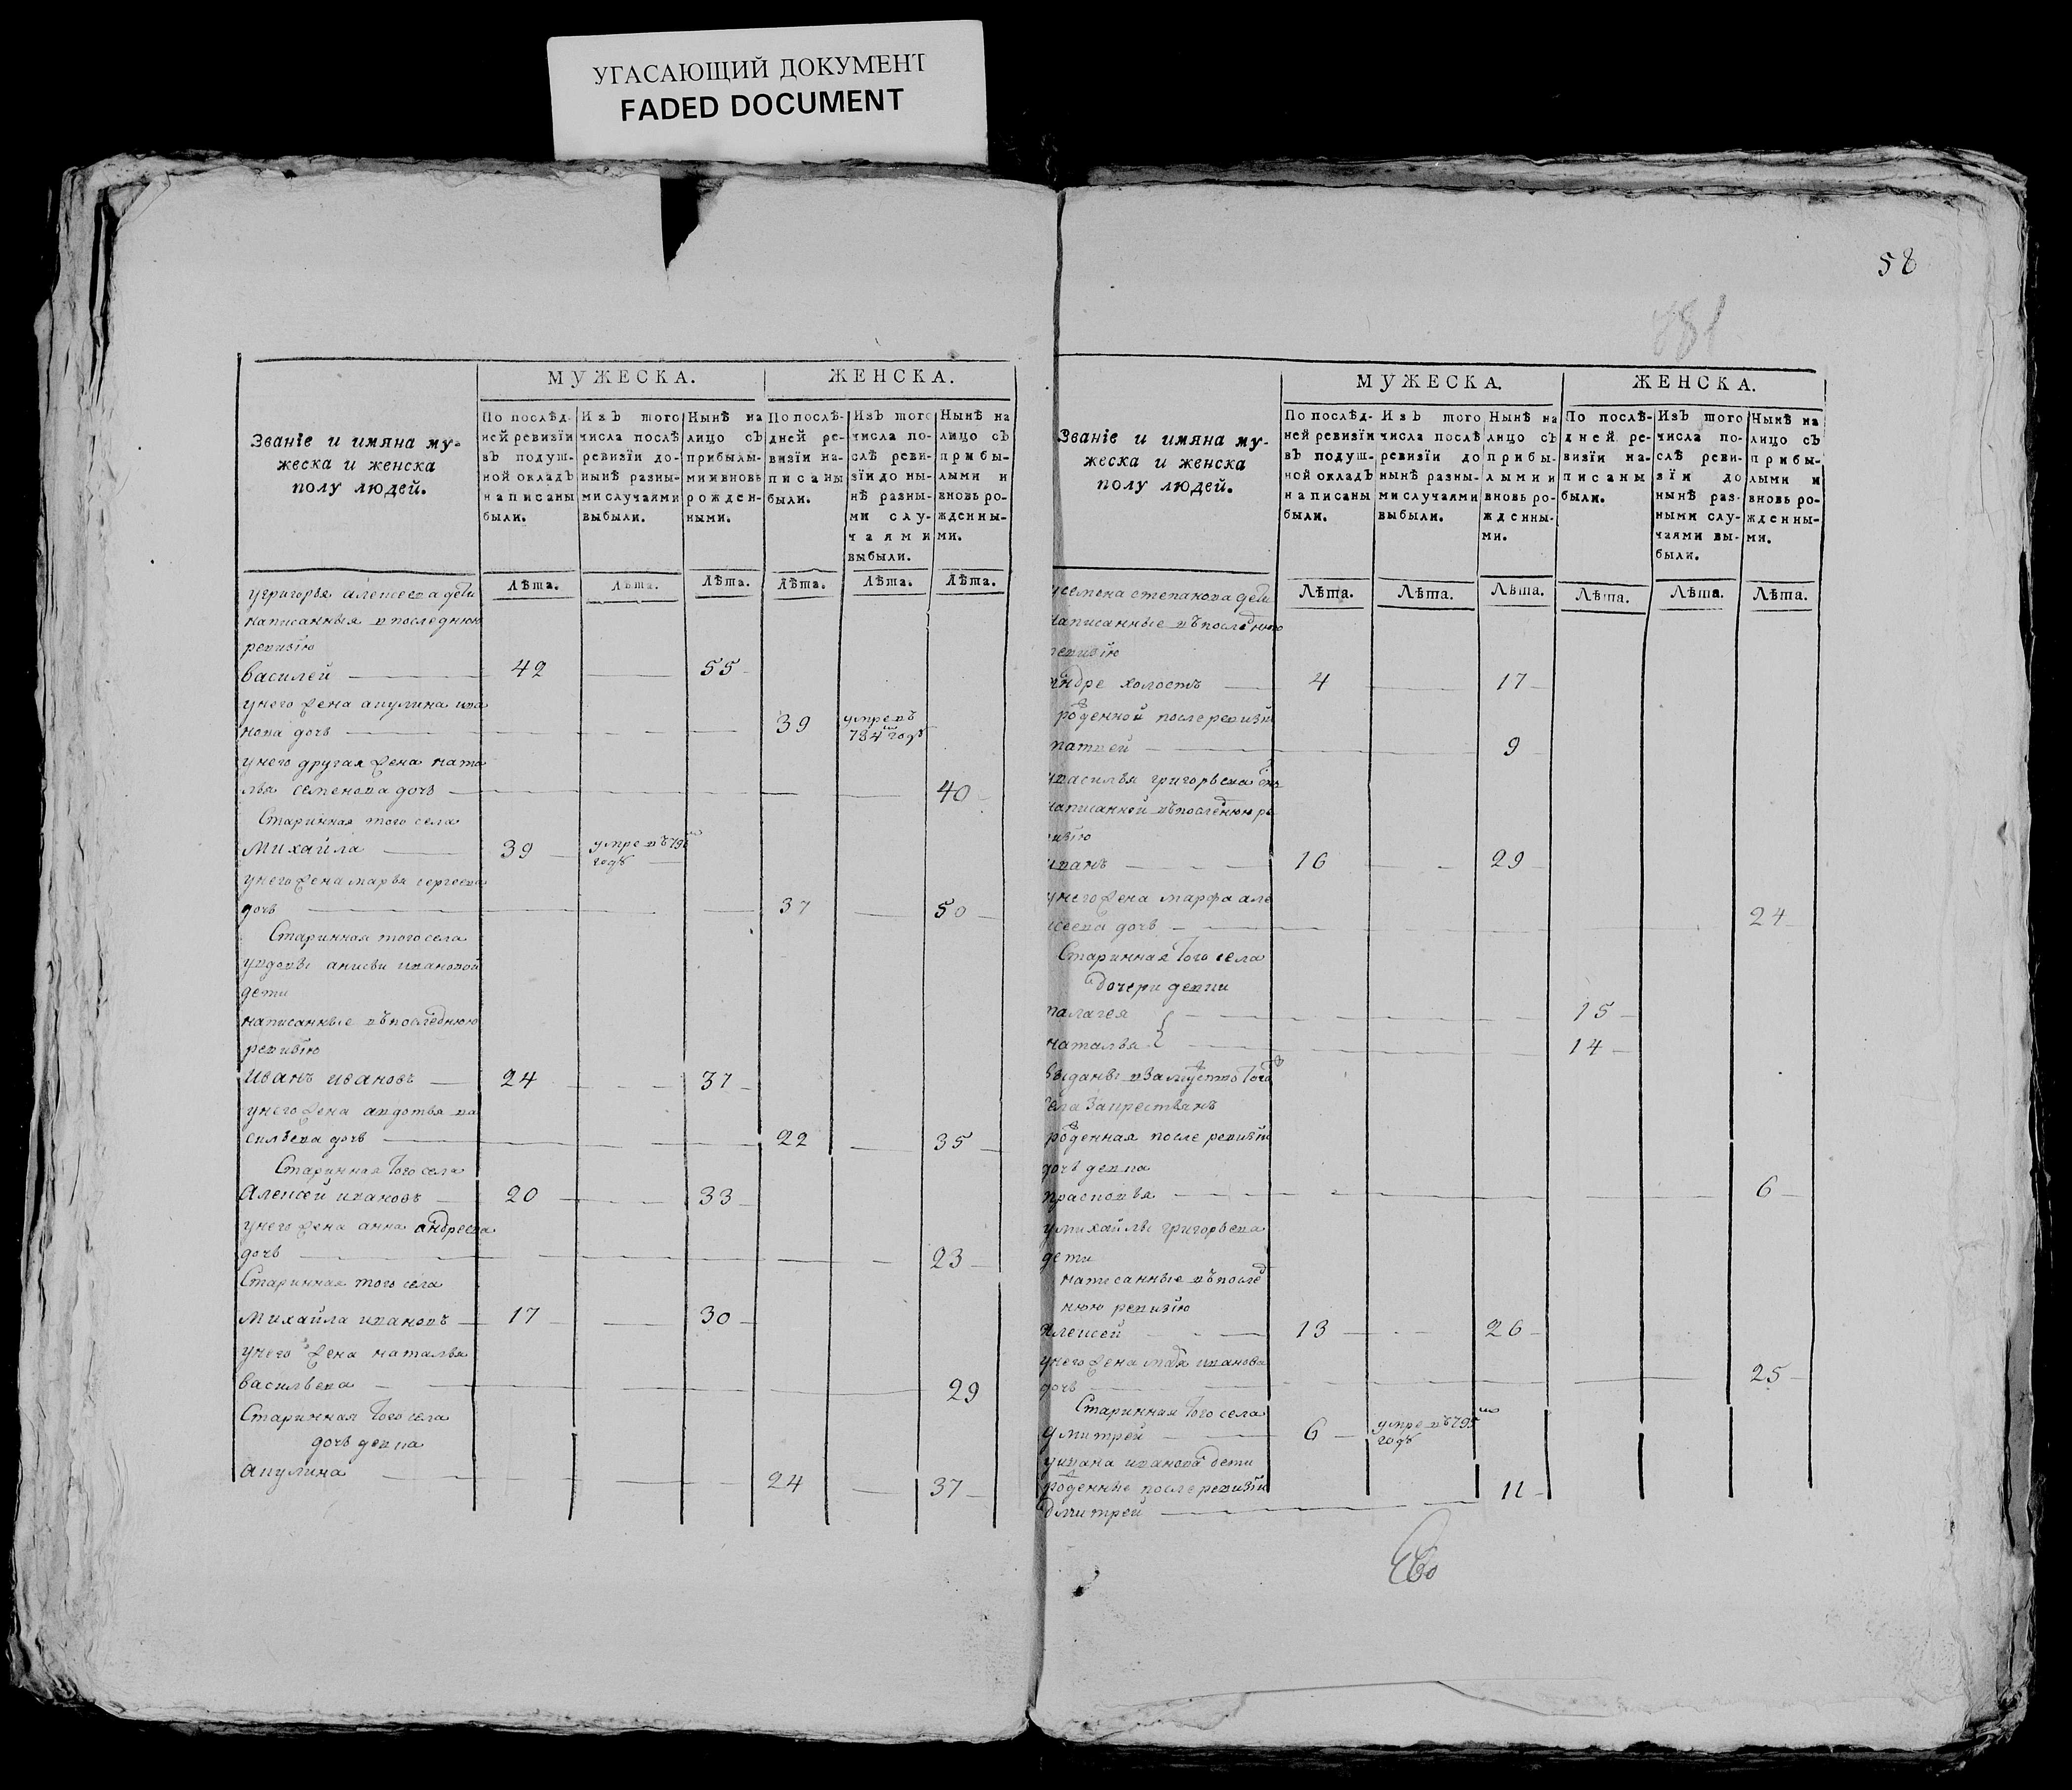 УГАСАЮЩИЙ ДОКУМЕНТ
FADED DOCUMENT
МУЖЕСКА.
ЖЕНСКА.
Званіе и имяна му-
жеска и женска
полу людей.
По послѣд-
ней ревизїи
въ подуш-
ной окладъ
написаны
были.
Изъ того
числа послѣ
ревизїи до-
нынѣ разны-
ми случаями
выбыли.
Нынѣ на
лицо съ
прибылы-
ми и вновь
рожден-
ными.
По послѣ-
дней ре-
визїи на-
писаны
были.
Изъ того
числа по-
слѣ реви-
зїи до ны-
нѣ разны-
ми слу-
чаями
выбыли.
Нынѣ на
лицо съ
прибы-
лыми и
вновь ро-
жденны-
ми.
Лѣта. Лѣта. Лѣта. Лѣта. Лѣта. Лѣта.
у григорья алексеева дети
написанныя в последнюю
ревизїю
василей 42 55
у него жена акулина ива
нова дочь 39 умре въ 784м годѣ
у него другая жена ната
лья семенова дочь 40
Старинная того села
михайла 39 умре въ годѣ
у него жена марья сергеева
дочь 37 50
Старинная того села
у вдовы анисьи ивановой
дети
написанные въ последнюю
ревизїю
Иванъ ивановъ 24 37
у него жена авдотья ва
сильева дочь 22 35
Старинная того села
алексей ивановъ 20 33
у него жена анна андреева
дочь 23
Старинная того села
михайла ивановъ 17 30
у него жена наталья
васильева 29
Старинная того села
дочь девка
акулина 24 37
58
МУЖЕСКА.
ЖЕНСКА.
Званіе и имяна му-
жеска и женска
полу людей.
По послѣд-
ней ревизїи
въ подуш-
ной окладъ
написаны
были.
Изъ того
числа послѣ
ревизїи до
нынѣ разны-
ми случаями
выбыли.
Нынѣ на
лицо съ
прибы-
лыми и
вновь ро-
жденны-
ми.
По послѣ-
дней ре-
визїи на-
писаны
были.
Изъ того
числа по-
слѣ реви-
зїи до
нынѣ раз-
ными слу-
чаями вы-
были.
Нынѣ на
лицо съ
прибы-
лыми и
вновь ро-
жденны-
ми.
Лѣта. Лѣта. Лѣта. Лѣта. Лѣта. Лѣта.
у семена степанова дети
написанные въ последнюю
ревизїю
андре холостъ 4 17
рожденной после ревизїи
матвей 9
у василья григорьева сынъ
написанной въ последнюю ре
визїю
иванъ 16 29
у него жена марфа але
ксеева дочь 24
Старинная того села
дочери девки
палагея 15
наталья 14
выданы в замужество того
села за крестьянъ
рожденная после ревизїи
дочь девка
прасковья 6
у михайлы григорьева
дети
написанные въ послед
нюю ревизїю
алексей 13 26
у него жена иванова
дочь 25
Старинная того села
дмитрей 6 умре въ 795м годѣ
у ивана иванова дети
рожденные после ревизїи
дмитрей 11